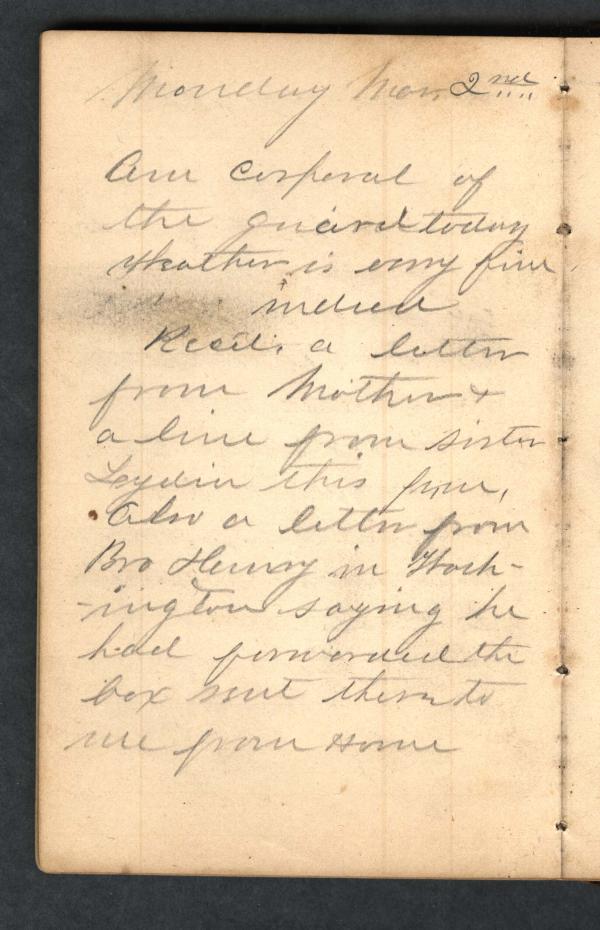 Monday Nov. 2nd
Am Corporal of
the guard today
Weather is very fine
indeed
Recd. a letter
from Mother &
a line from sister
Lydia this
Also a letter from
Bro Henry in Wash-
-ington saying he
had forwarded the
box sent there to
me from Home